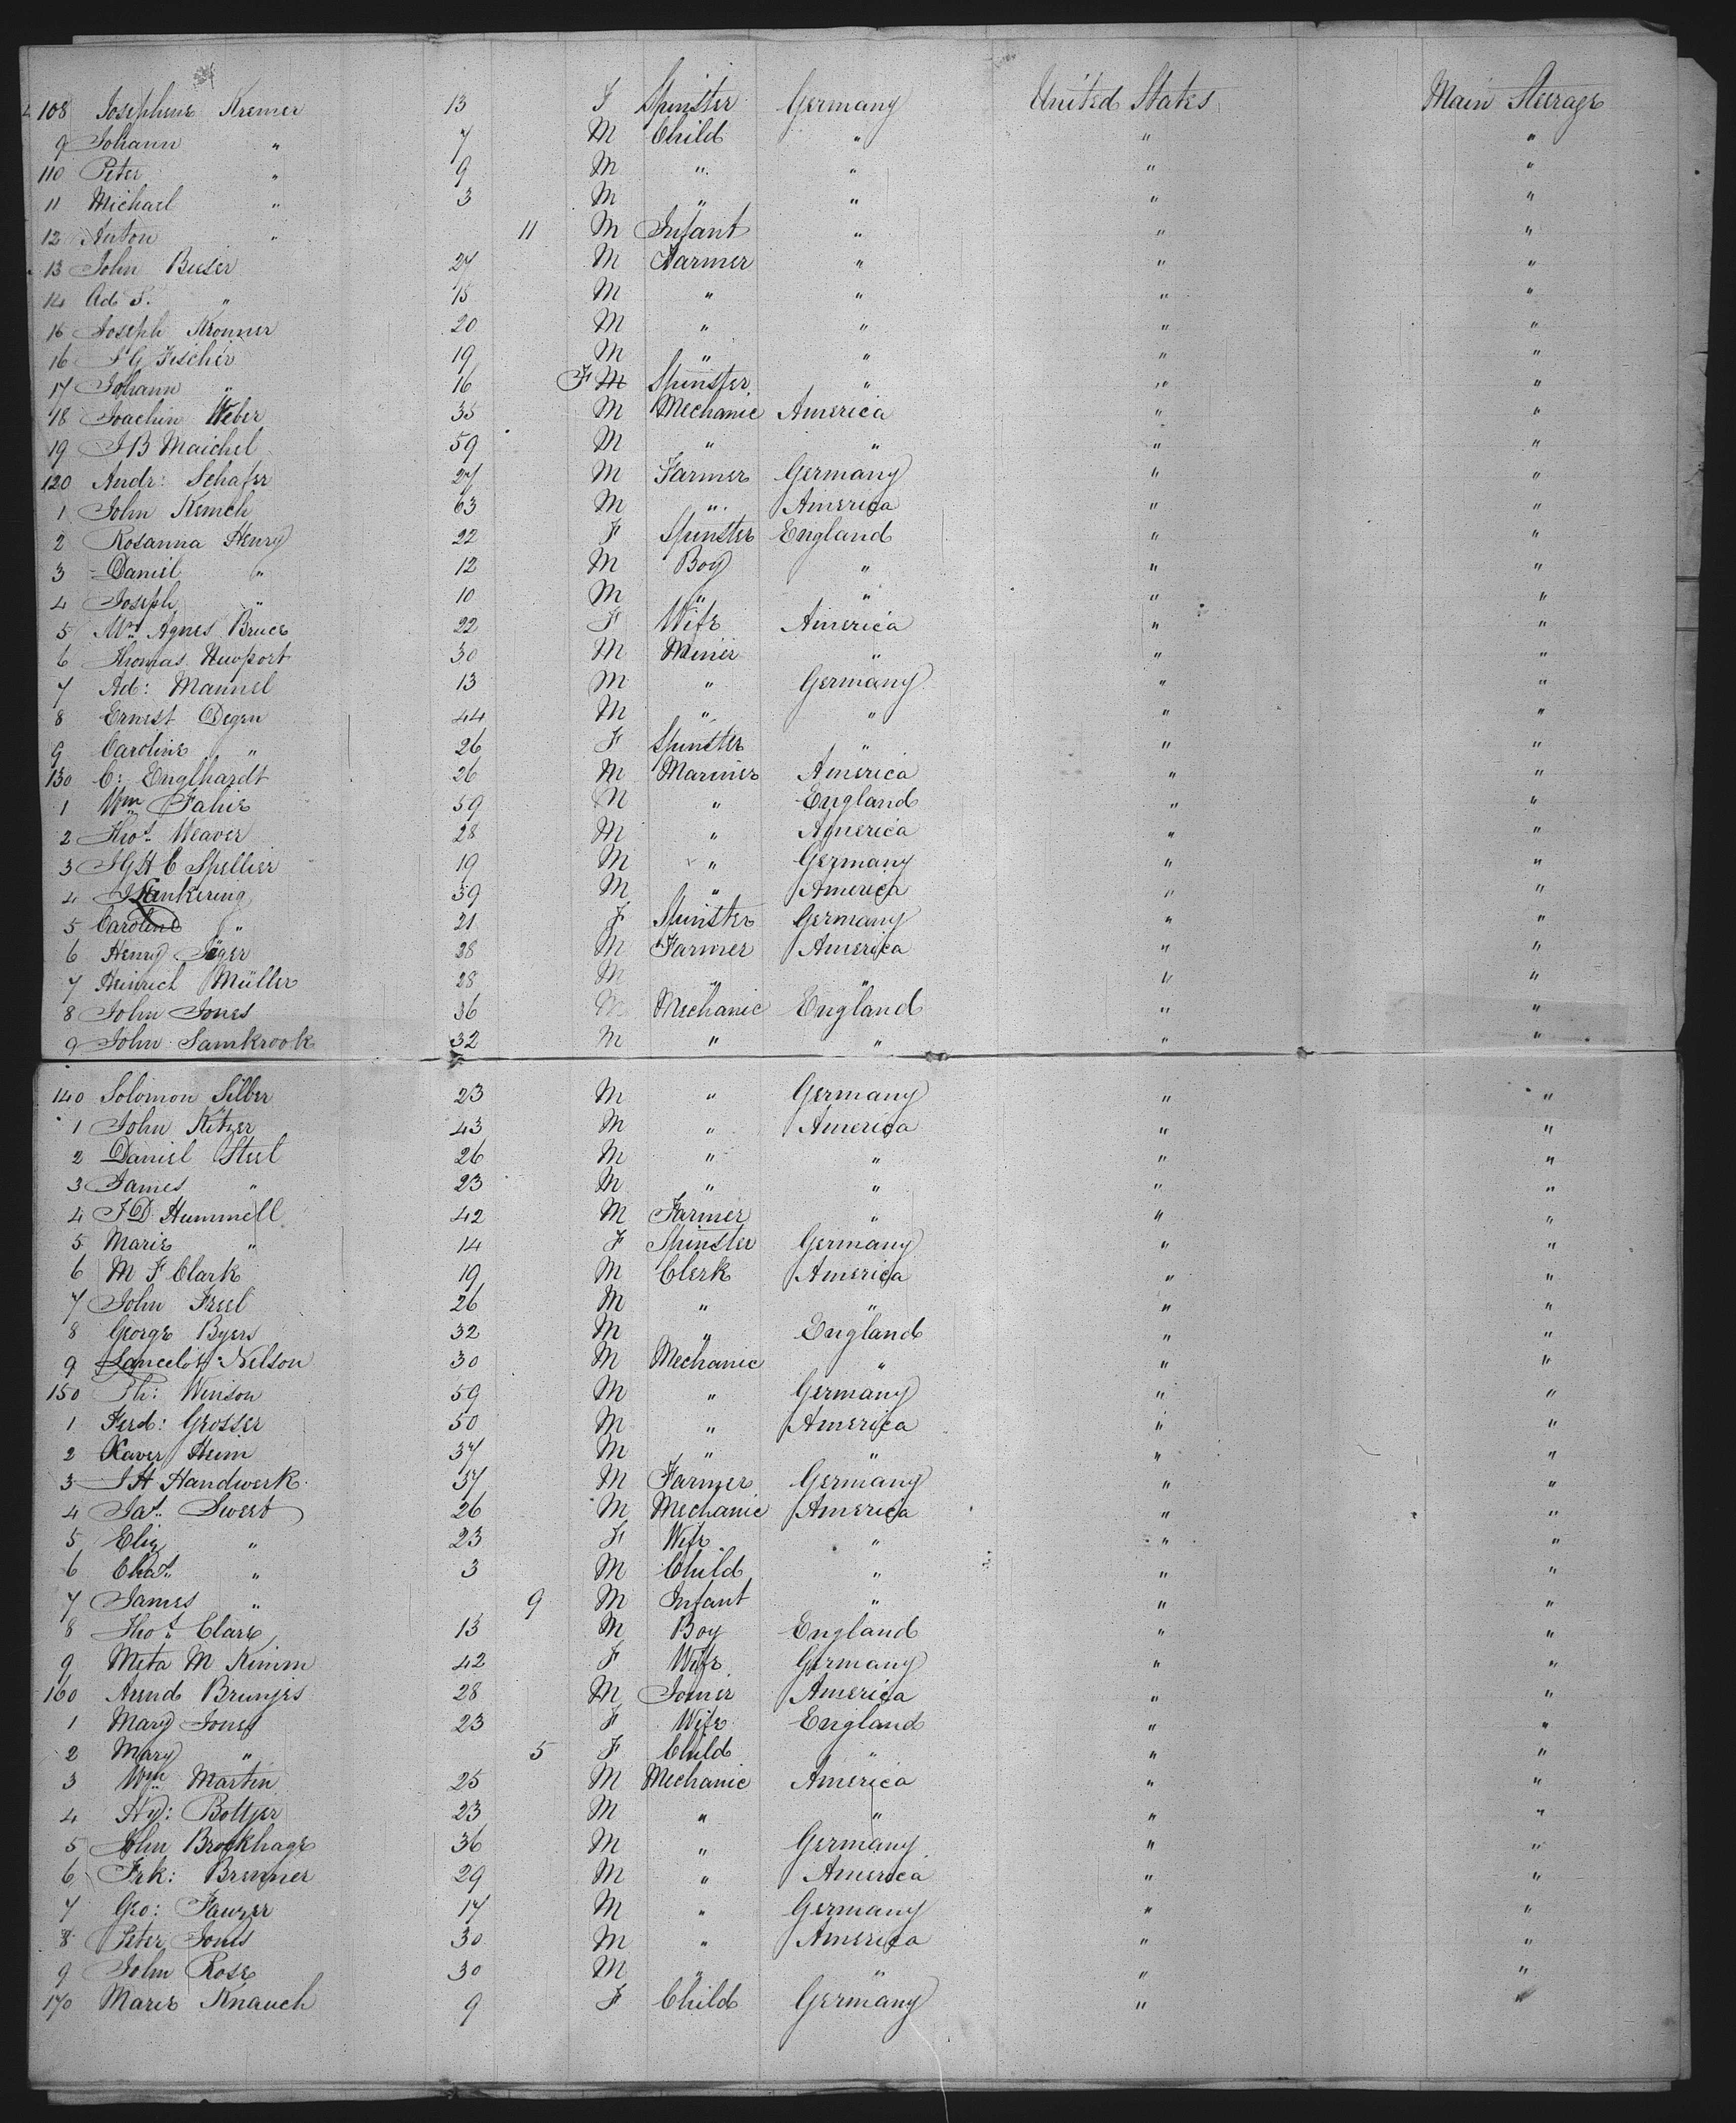 108 Josephene Kremer 13 F Spinster Germany United States Main Steerage
9 Johann " 7 M Child " " "
110 Peter " 9 M " " " "
11 Michael " 3 M " " " "
12 Anton " 11 M Infant " " "
13 John Beeser 27 M Farmer " " "
14 Ad P. " 15 M " " " "
16 Joseph Kromer 20 M " " " "
16 Fischer 19 M " " " "
17 Johann " 16 F M Spinster " " "
18 Joachin Weber 35 M Mechanic America " "
19 J B Maichel 59 M " " " "
120 Andr: Schafer 27 M Farmer Germany " "
1 John Kemch 63 M " America " "
2 Rosanna Henry 22 F Spinster England " "
3 Daniel " 12 M Boy " " "
4 Joseph " 10 M " " " "
5 Mrs Agnes Bruce 22 F Wife America " "
6 Thomas Newport 30 M Miner " " "
7 Ad: Mannel 13 M " Germany " "
8 Ernest Degen 44 M " " " "
9 Caroline " 26 F Spinster " " "
130 C: Englhardt 26 M Mariner America " "
1 Wm Fahie 59 M " England " "
2 Thos Weaver 28 M " America " "
3 J G H C Spellier 19 M " Germany " "
4 J Hankering 59 M " America " "
5 Caroline " 21 F Spinster Germany " "
6 Henry Jäger 28 M Farmer America " "
7 Heinrich Müller 28 M " " " "
8 John Jones 36 M Mechanic England " "
9 John Samkrook 32 M " " " "
140 Solomon Silber 23 M " Germany " "
1 John Kitzer 43 M " America " "
2 Daniel Steel 26 M " " " "
3 James " 23 M " " " "
4 J D Hummell 42 M Farmer " " "
5 Marie " 14 F Spinster Germany " "
6 M F Clark 19 M Clerk America " "
7 John Freel 26 M " " " "
8 George Byers 32 M " England " "
9 Lancelot Nelson 30 M Mechanic " " "
150 Th: Winson 59 M " Germany " "
1 Ferd: Grosser 50 M " America " "
2 Xaver Heim 37 M " " " "
3 J H Handwerk 37 M Farmer Germany " "
4 Jas Sweet 26 M Mechanic America " "
5 Eliz " 23 F Wife " " "
6 Chas " 3 M Child " " "
7 James " 9 M Infant " " "
8 Thos Clare 13 M Boy England " "
9 Meta M Kimm 42 F Wife Germany " "
160 Arend Brunjes 28 M Joiner America " "
1 Mary Jones 23 F Wife England " "
2 Mary " 5 F Child " " "
3 Wm Martin 25 M Mechanic America " "
4 Hy: Boltjer 23 M " " " "
5 John Brockhage 36 M " Germany " "
6 Frk: Brenner 29 M " America " "
7 Geo: Fauzer 17 M " Germany " "
8 Peter Jones 30 M " America " "
9 John Rose 30 M " " " "
170 Marie Knauch 9 F Child Germany " "